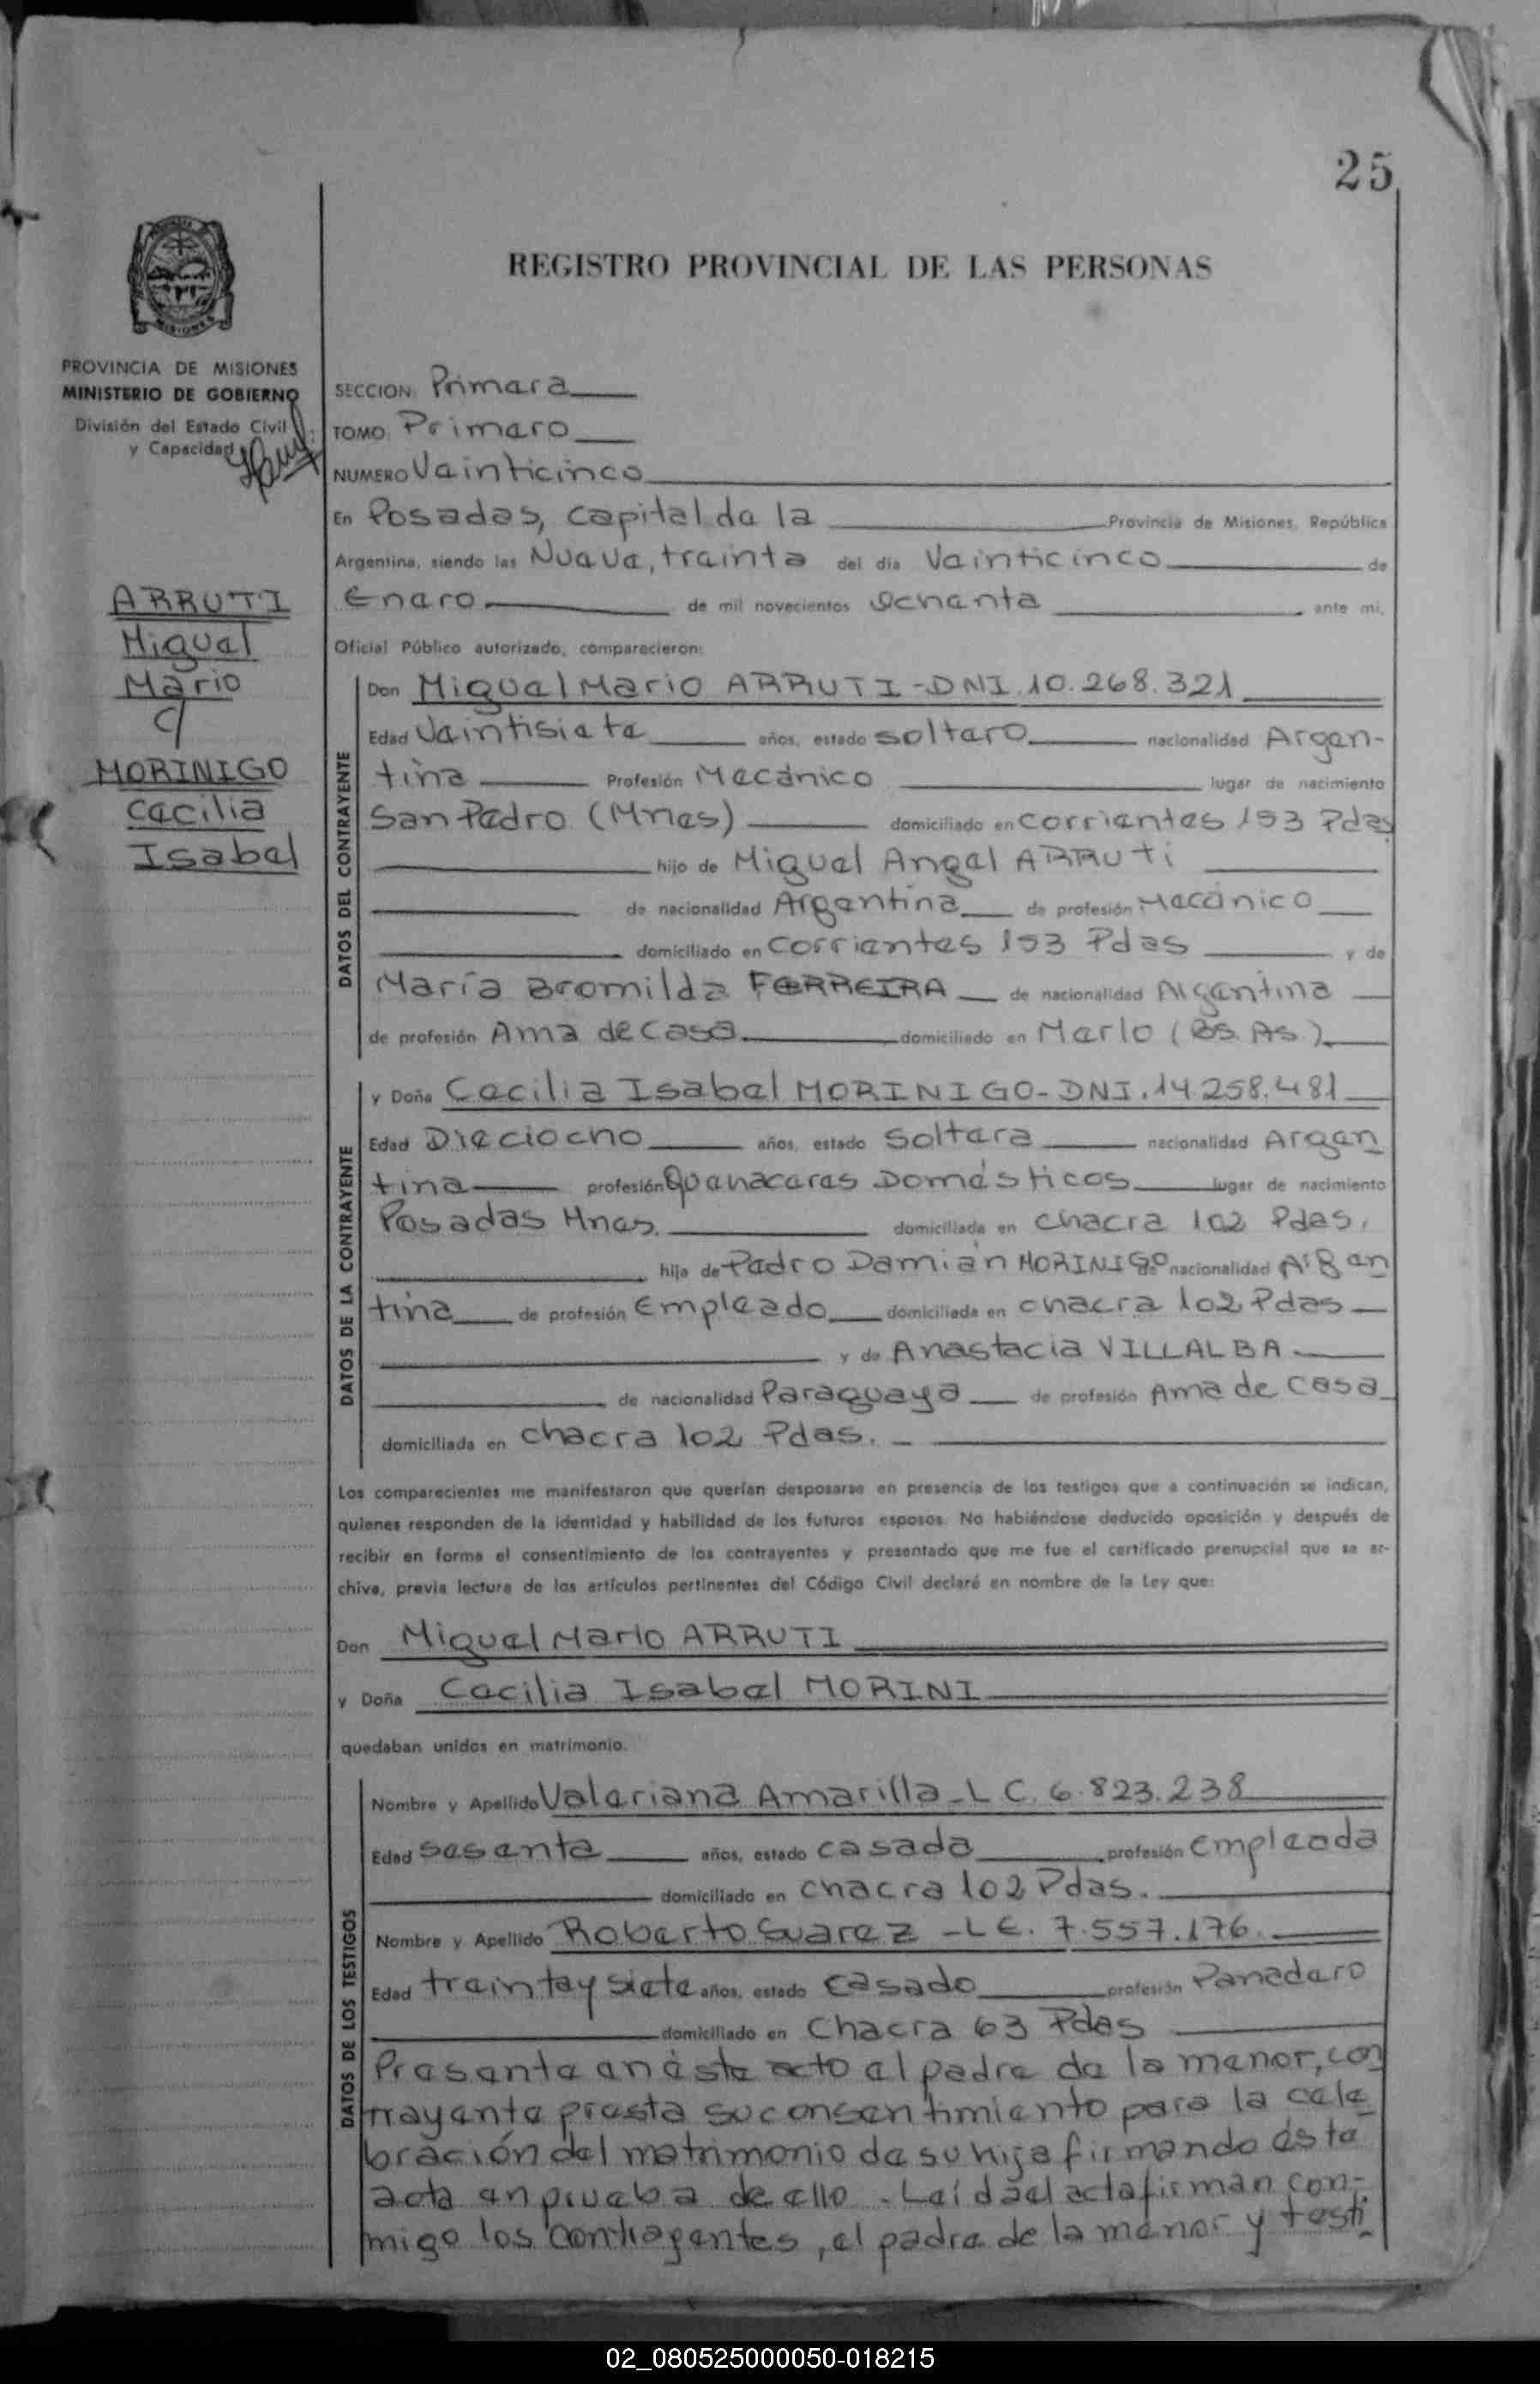 25
REGISTRO PROVINCIAL DE LAS PERSONAS
PROVINCIA DE MISIONES
MINISTERIO DE GOBIERNO
División del Estado Civil
y Capacidad
ARRUTI
Miguel
Mario
c/
MORINIGO
Cecilia
Isabel
SECCION: Primera
TOMO: Primero
NUMERO Veinticinco
En Posadas, capital de la Provincia de Misiones, República
Argentina, siendo las Nueve, treinta del día Veinticinco de
Enero de mil novecientos Ochenta ante mí,
Oficial Público autorizado, comparecieron:
DATOS DEL CONTRAYENTE
Don Miguel Mario ARRUTI - DNI. 10.268.321
Edad Veintisiete años, estado soltero nacionalidad Argen-
tina Profesión Mecánico lugar de nacimiento
San Pedro (Mnes) domiciliado en Corrientes 153 Pdas
hijo de Miguel Angel ARRUTI
de nacionalidad Argentina de profesión Mecánico
domiciliado en Corrientes 153 Pdas y de
María Bromilda FERREIRA de nacionalidad Argentina
de profesión Ama de Casa domiciliado en Merlo (Bs. As.)
DATOS DE LA CONTRAYENTE
y Doña Cecilia Isabel MORINIGO - DNI. 14.258.481
Edad Dieciocho años, estado Soltera nacionalidad Argen
tina profesión Quehaceres Domésticos lugar de nacimiento
Posadas Mnes. domiciliada en Chacra 102 Pdas.
hija de Pedro Damián MORINIGO de nacionalidad Argen
tina de profesión Empleado domiciliada en chacra 102 Pdas
y de Anastacia VILLALBA
de nacionalidad Paraguaya de profesión Ama de Casa
domiciliada en Chacra 102 Pdas.
Los comparecientes me manifestaron que querían desposarse en presencia de los testigos que a continuación se indican,
quienes responden de la identidad y habilidad de los futuros esposos. No habiéndose deducido oposición y después de
recibir en forma el consentimiento de los contrayentes y presentado que me fue el certificado prenupcial que se ar-
chiva, previa lectura de los artículos pertinentes del Código Civil declaré en nombre de la Ley que:
Don Miguel Mario ARRUTI
y Doña Cecilia Isabel MORINI
quedaban unidos en matrimonio.
DATOS DE LOS TESTIGOS
Nombre y Apellido Valeriana Amarilla - L C. 6.823.238
Edad Sesenta años, estado casada profesión Empleada
domiciliado en chacra 102 Pdas.
Nombre y Apellido Roberto Suarez - L E. 7.557.176
Edad treinta y siete años, estado Casado profesión Panadero
domiciliado en Chacra 63 Pdas
Presente en éste acto el padre de la menor, con
trayente presta su consentimiento para la cele
bración del matrimonio de su hija firmando ésta
acta en prueba de ello. Leída el acta firman con-
migo los contrayentes, el padre de la menor y testi
02_080525000050-018215